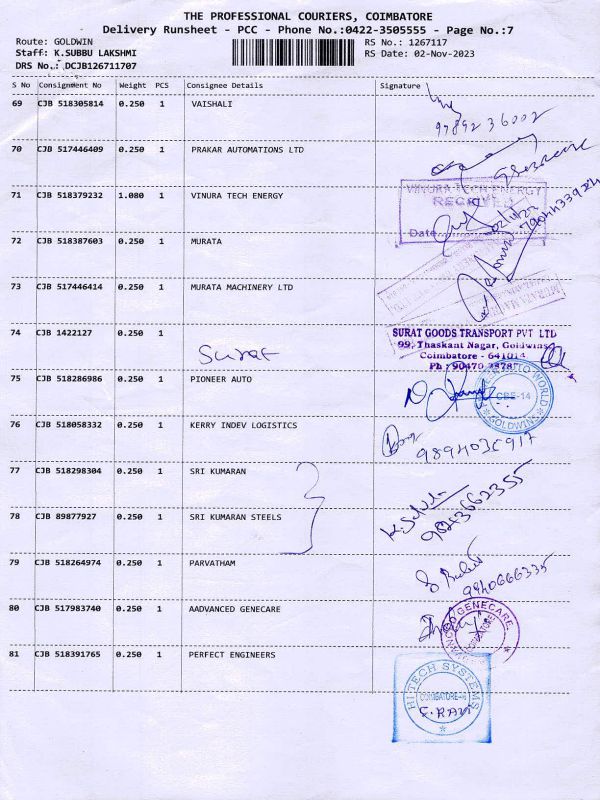 THE PROFESSIONAL COURIERS, COIMBATORE
Delivery Runsheet - PCC - Phone No.:0422-3505555 - Page No.:7
Route: GOLDWIN
RS No.: 1267117
Staff: K.SUBBU LAKSHMI
RS Date: 02-Nov-2023
DRS No.: DCJB126711707
S No Consignment No Weight PCS Consignee Details Signature
69 CJB 518305814 0.250 1 VAISHALI
9789236002
70 CJB 517446409 0.250 1 PRAKAR AUTOMATIONS LTD
71 CJB 518379232 1.080 1 VINURA TECH ENERGY
VINURA TECH ENERGY
RECEIVED
Date
72 CJB 518387603 0.250 1 MURATA
73 CJB 517446414 0.250 1 MURATA MACHINERY LTD
74 CJB 1422127 0.250 1
Surat
SURAT GOODS TRANSPORT PVT LTD
99, Thaskant Nagar, Goldwins
Coimbatore - 641014
75 CJB 518286986 0.250 1 PIONEER AUTO
AUTO WORLD
CBE-14
GOLDWINS
76 CJB 518058332 0.250 1 KERRY INDEV LOGISTICS
77 CJB 518298304 0.250 1 SRI KUMARAN
78 CJB 89877927 0.250 1 SRI KUMARAN STEELS
9843662355
79 CJB 518264974 0.250 1 PARVATHAM
9940666335
80 CJB 517983740 0.250 1 AADVANCED GENECARE
GENECARE
81 CJB 518391765 0.250 1 PERFECT ENGINEERS
HI TECH SYSTEMS